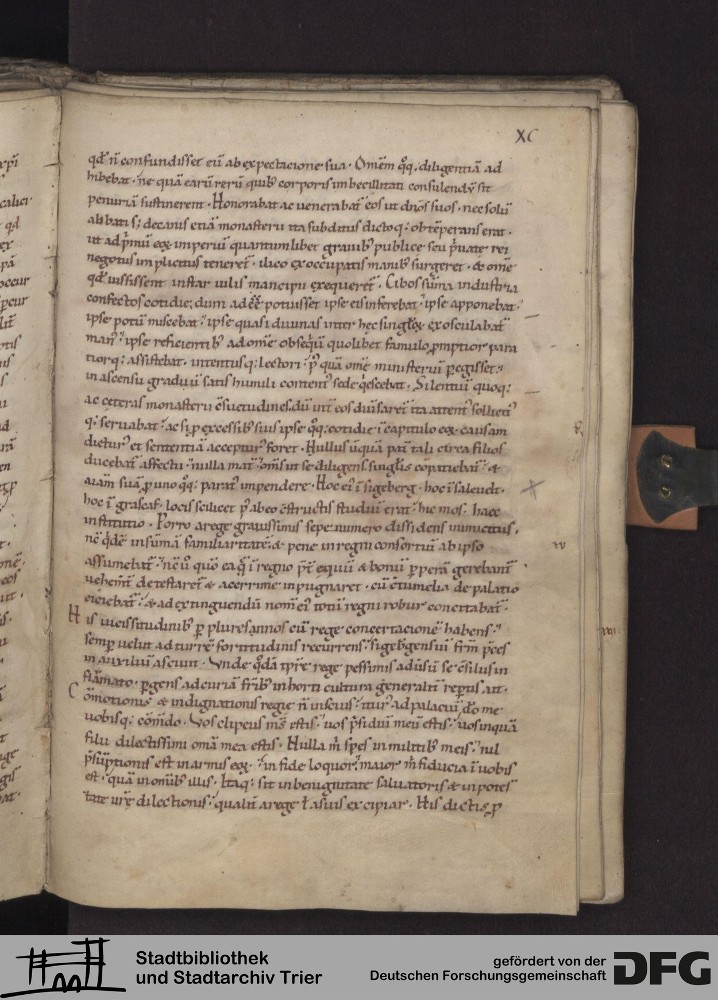 XC
qđ n confundisset eū ab expectacione sua. Omēm qͣq, diligentiā ad
hibebat. ne quā earū rerū quibꝰ corporis imbecillitati consulendū sit
penuriā sustinerent. Honorabat ac venerabat eos ut dn̄os suos. nec solū
abbatis; decanis etiā monasterii ita subditus dictoq; obtēperans erat.
ut ad pͥmū eoꝝ imperiū quantumlibet grauibꝰ publice seu pͥuate rei
negotiis inplicitus teneret. ilico ex occupatis manibꝰ surgeret. & om̄e
qđ iussissent instar uilis mancipii exequeret. Cibos sūma industria
confectos cotidie; dum adeē potuisset ipse eis inferebat. ipse apponebat.
ipse potū miscebat. ipse quasi diuinas inter hec singłoꝝ exosculabat
manꝰ. ipse reficientibꝰ ad om̄e obsequiū quolibet famulo ꝓmptior para
tiorq; assistebat. intentusq; lectori. pꝰquā om̄e ministeriū ꝑegisset.
in ascensu graduū satis humili contentꝰ sede qͥescebat. Silentiū quoq;
ac ceteras monasterii c̄suetudines. dū int̄ eos diūsaret ita attentꝰ sollicitꝰ
q; seruabat. ac si ꝓ excessibꝰ suis ipse qͣq; cotidie ī capitulo eoꝝ causam
dicturꝰ et sententiā accepturꝰ foret. Nullus ūquā pat̄ tali circa filios
ducebat affectu. nulla mat̄. om̄s ut se diligens singłis cōpatiebat. &
aīam suā ꝓ uno qͦq; paratꝰ impendere. Hoc ei ī sigeberg. hoc ī saleuelt.
hoc ī grascaf. locis scilicet pͥ ab eo c̄structis studiū erat. hic mos. haec
institutio. Porro a rege grauissimis sepe numero dissidens inimicitiis.
nc̄ qͥdē in sūmā familiaritatē. & pene in regni consortiū ab ipso
assumebat. nc̄ ū quo ea qͤ ī regno pͭ equū & bonū ꝑperā gerebant
vehemt̄ detestaret̄ & acerrime inpugnaret. cū c̄tumelia de palatio
eiciebat. & ad extinguendū nom̄ ei totū regni robur concitabat.
H is uicissitudinibꝰ ꝑ plures annos cū rege concertacionē habens.
semꝑ velut ad turrē fortitudinis recurrens. sigebgensiū frm̄ pͤces
in auxiliū asciuit. Vnde qͣdā tp̄re rege pessimis adūsū se c̄siliis in
flāmato. ꝑgens ad curiā frībꝰ in horti cultura generalit̄ reptis ait.
C ōmotionis & indignationis regie n̄ inscius. itur̄ ad palaciū. dō me
uobisq; cōm̄do. Vos clipeus mš estis. uos pͤsidiū meū estis. uos inquā
filii dilectissimi om̄a mea estis. Nulla m̄ spes in militibꝰ meis. nul
pͤsūptionis est in armis eoꝝ. in fide loquor. maior m̄ fiducia ī uobis
est. quā in om̄ibꝰ illis. Itaq; sit in benignitate saluatoris & in potes
tate urē dilectionis. qualit̄ a rege ł a suis excipiar. His dictis ꝓ
Stadtbibliothek
und Stadtarchiv Trier
gefördert von der
Deutschen Forschungsgemeinschaft
DFG